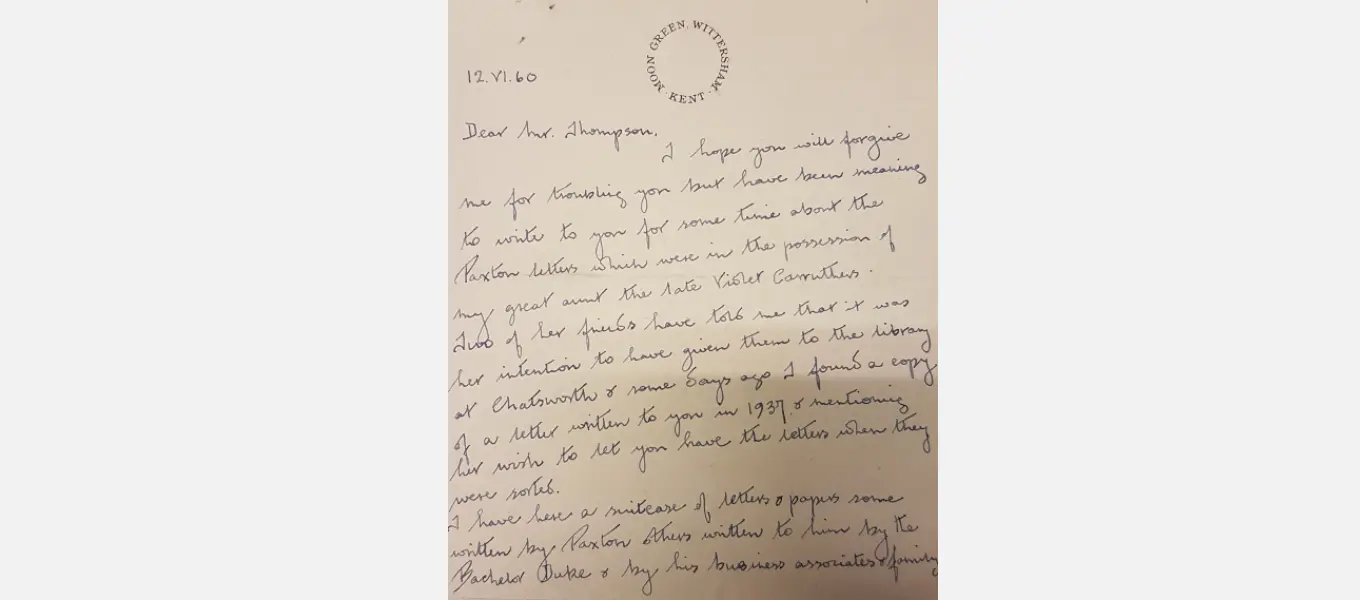 MOON GREEN, WITTERSHAM · KENT ·
12.VI.60
Dear Mr. Thompson.
I hope you will forgive
me for troubling you but have been meaning
to write to you for some time about the
Paxton letters which were in the possession of
my great aunt the late Violet Carruthers.
Two of her friends have told me that it was
her intention to have given them to the library
at Chatsworth & some days ago I found a copy
of a letter written to you in 1937 & mentioning
her wish to let you have the letters when they
were sorted.
I have here a suitcase of letters & papers some
written by Paxton others written to him by the
Bachelor Duke & by his business associates & family